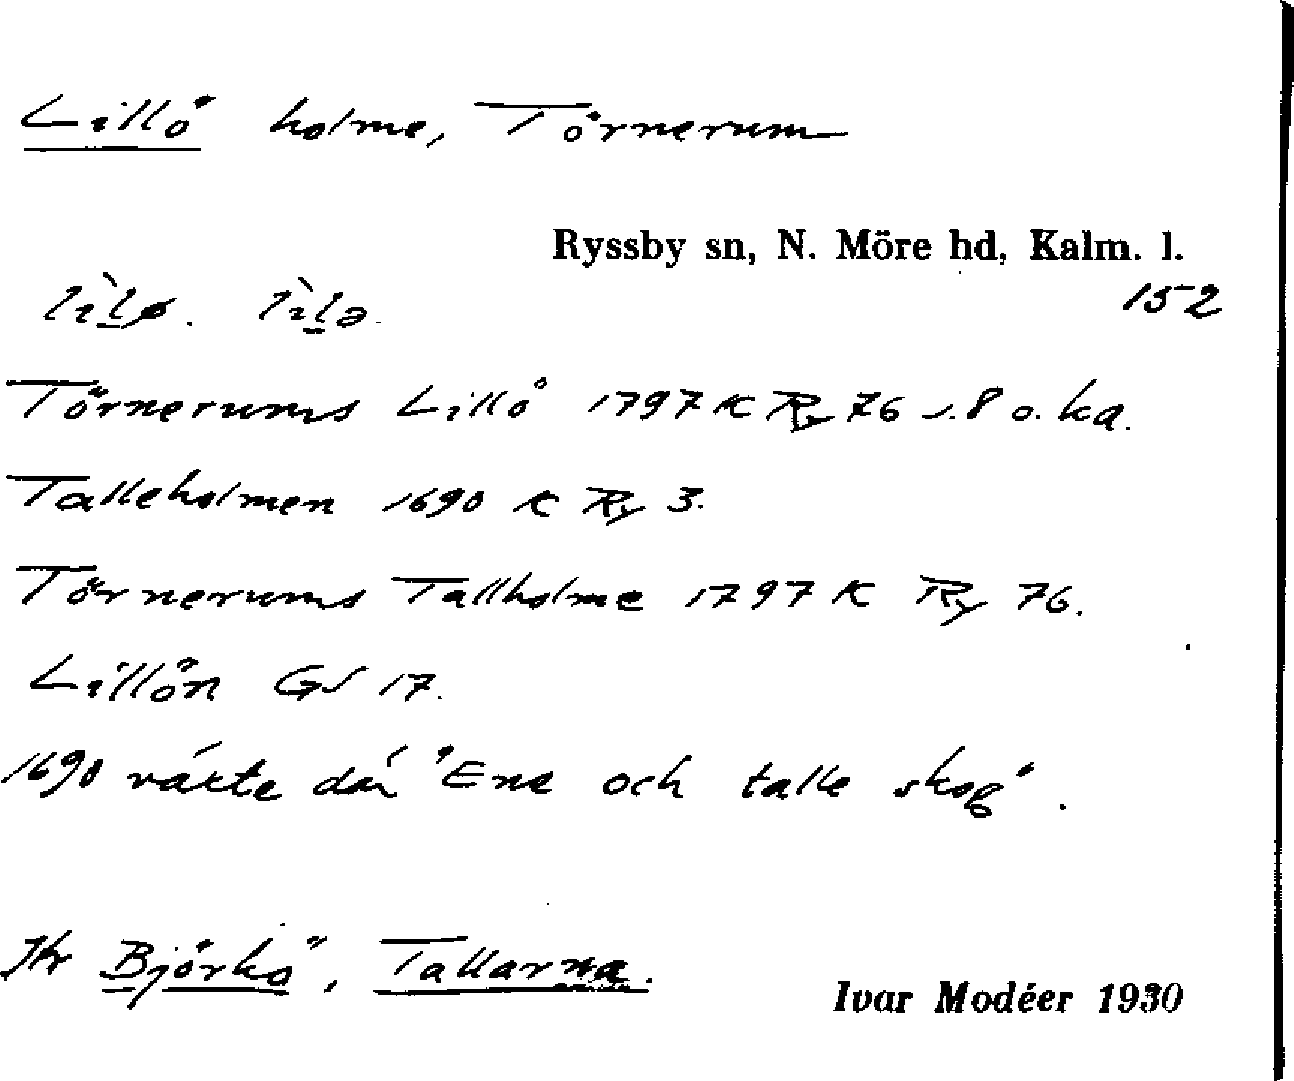 Lillö holme, Törnerum
Ryssby sn, N. Möre hd, Kalm. l.
lìlø. lìlə.
152
Törnerums Lillö 1797 K Ry 76 s. 8 o. ka.
Talleholmen 1690 K Ry 3.
Törnerums Tallholme 1797 K Ry 76.
Lillön GS 17.
1690 växte där "Ene och talle skog".
Jfr Björkö, Tallarna.
Ivar Modéer 1930